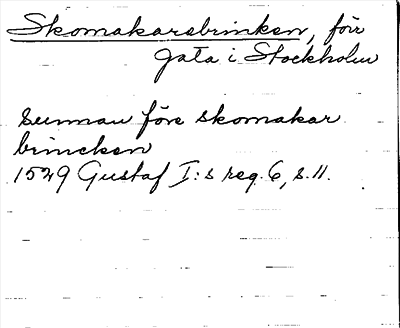 Skomakarsbrinken, förr
gata i Stockholm
sunnan före skomakar
brincken
1529 Gustaf I:s reg. 6, s. 11.